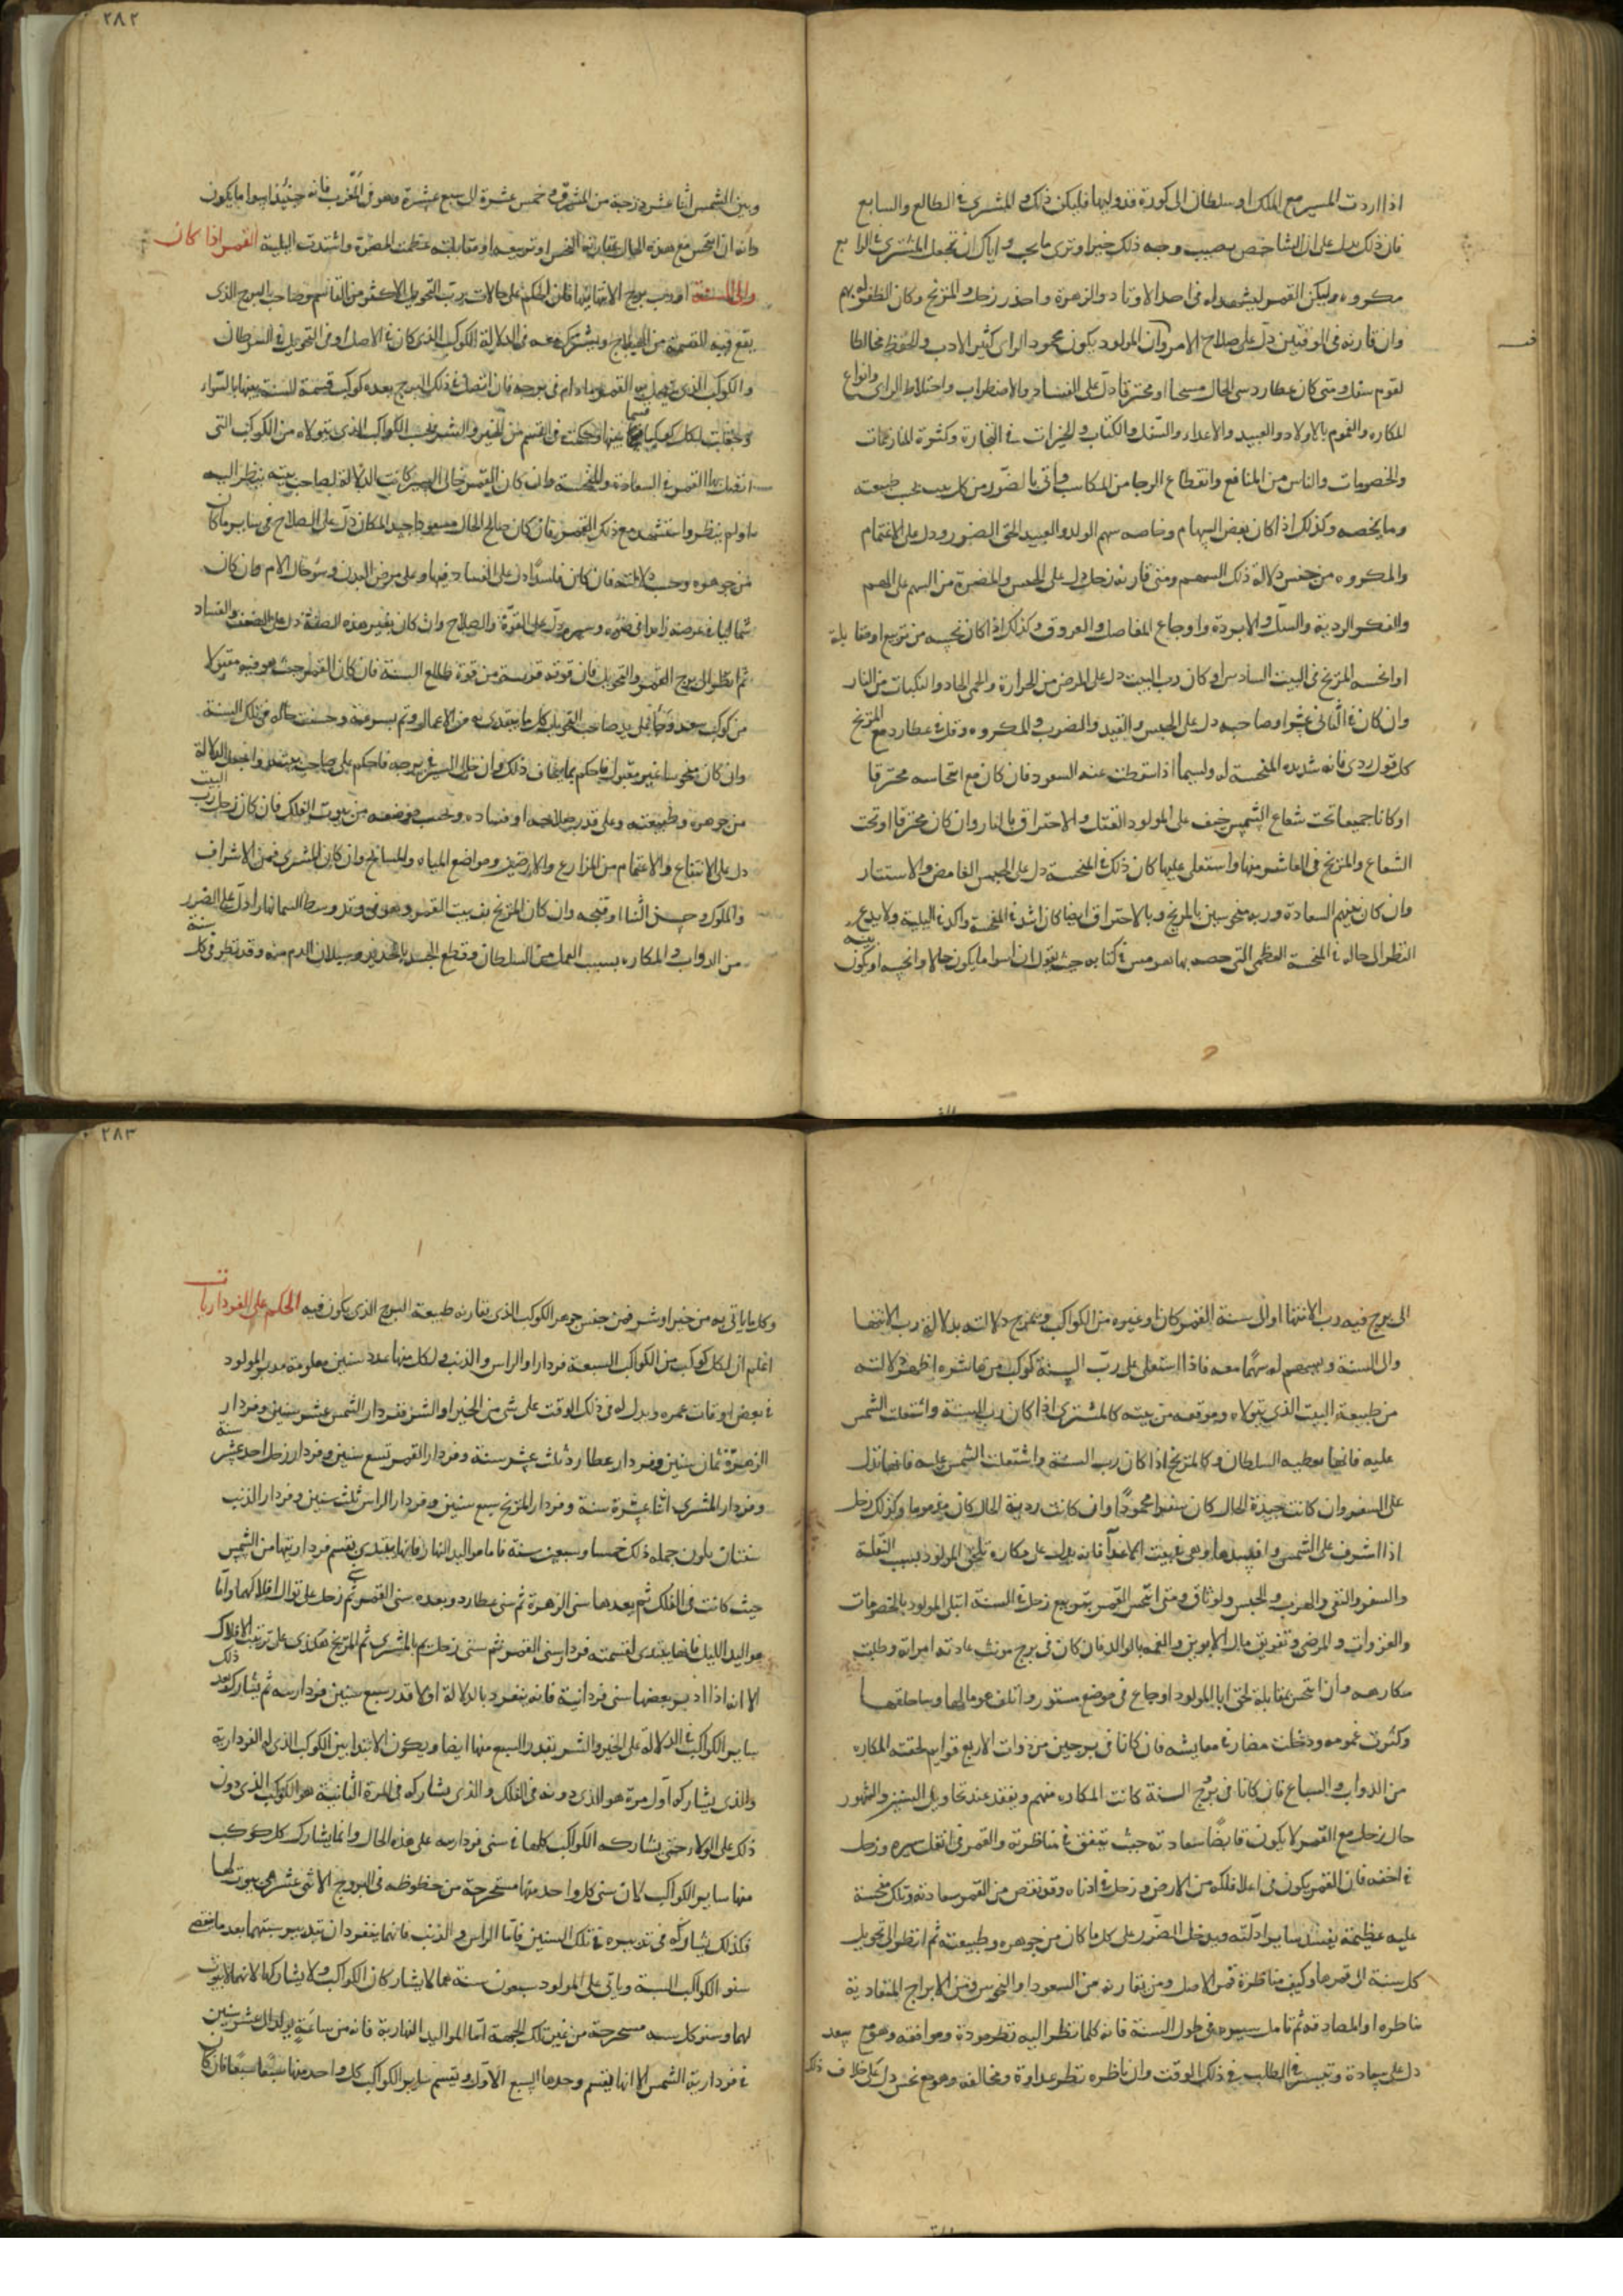 اذا اردت المسير مع الملك او سلطان الى كورة قد وليها فليكن ذلك والمشترى فى الطالع والسابع
فان ذلك يدل على ان الشاخص يصيب وجه ذلك خيرا وترى ما يحب واياك ان تجعل المشترى فى الرابع
مكروه وليكن القمر ليشهد له فى احد الاوتاد والزهرة واحذر زحل والمريخ وكان الظفر لهم
وان قارنه فى الوقتين دل على صلاح الامر وان المولود يكون محمود الراى كثير الادب والحفظ مخالطا
لقوم سفل ومتى كان عطارد سى الحال مسحا او محترقا دل على الفساد والاضطراب واختلاط الراى وانواع
المكاره والغموم بالاولاد والعبيد والاعداء والسفل والكتاب والخيرات فى التجارة وكثرة المنازعات
والخصومات والناس من المنافع وانقطاع الرجا من المكاسب واتى بالضرر من كل بيت بحسب طبيعته
وما يخصه وكذلك اذا كان بعض السهام وخاصه سهم الولد والعبيد لحق الضرر ودل على الاغتمام
والمكروه من جنس دلالة ذلك السهم ومتى قارنه زحل دل على الحبس والمضرة من السهم على الهم
والفكر الردية والسل والابردة واوجاع المفاصل والعروق وكذلك اذا كان نحسه من تربيع او مقابلة
او انحسه المريخ فى البيت السادس او كان رب البيت دل على المرض من الحرارة والحمى الحاد والنكبات من النار
وان كان فى الثانى عشر او صاحبه دل على الحبس والقيد والضرب والمكروه وقل فى عطارد مع المريخ
كل قول ردى فانه شديد المنحسة له ولسيما اذا سقطت عنه السعود فان كان مع انتحاسه محترقا
او كانا جميعا تحت شعاع الشمس خيف على المولود القتل والاحتراق بالنار وان كان محترقا او تحت
الشعاع والمريخ فى العاشر منها واستعلى عليها كان ذلك فى المنحسة دل على الحبس الغامض والاستتار
وان كان سهم السعادة وربه منحوسين بالمريخ وبالاحتراق ايضا كان اشد فى المنحسة واكد فى البلية ولا يدع
النظر الى حاله فى المنحسة العظمى التى خصه بها هرمس فى كتابه حيث يقول ان اسوا ما يكون حالا وانحسه ان يكون بينه
٢٨٢
وبين الشمس اثنا عشر درجة من المشرق او خمس عشرة الى سبع عشرة وهو فى المغرب فانه حينئذ اسوا ما يكون
وانه ان انتحس مع هذه الحال بمقارنة النحس او تربيعه او مقابلته عظمت المضرة واشتدت البلية القمر اذا كان
والى السنة او رب برج الانتها
يقع فيه القسمة من الهيلاج ويشترك معه فى الدلالة الكوكب الذى كان فى الاصل او فى التحويل فى السرطان
والكوكب الذى يتصل به القمر ما دام فى برجه فان اتصل فى ذلك البرج بعده كوكب قسمة السنة بينها بالسواء
اتصل بها القمر فى السعادة والمنحسة وان كان القمر خالى السير كانت الدلالة لصاحب بيته ينظر اليه
او لم ينظر واستشهد مع ذلك القمر فان كان صالح الحال مسعودا جيد المكان دل على الصلاح فى ساير ما كان
من جوهره وحسب دلالته فان كان فاسدا دل على الفساد فيها وعلى مرض البدن وسوء حال الام وان كان
شماليا فى عرضه زايدا فى ضوءه وسيره دل على القوة والصلاح وان كان بغير هذه الصفة دل على الضعف والفساد
ثم انظر الى برج القمر والتحويل فان قوته قريبة من قوة طالع السنة فان كان القمر حيث هو فيه مقبولا
من كوكب سعد
وان كان منحوسا غير مقبول فاحكم بما يخالف ذلك وان خالى السير فى برجه فاحكم على صاحب بيته واجعل الدلالة
من جوهره وطبيعته وعلى قدر صلاحه او فساده وبحسب موضعه من بيوت الفلك فان كان زحل رب البيت
دل على الانتفاع والاغتمام من المزارع والارضين ومواضع المياه والمسايح وان كان المشترى فمن الاشراف
والملوك وحسن الثنا او قبحه وان كان المريخ فى بيت القمر وهو فى وتد وسط السما نهارا دل على الضرر
من الدواب والمكاره بسبب العمل من السلطان وقطع الجسد بالحديد وسيلان الدم منه وقد تنظر فى كل سنة
الى برج فيه رب الانتها او الى سنة القمر كان او غيره من الكواكب ويمزج دلالته بدلالة رب الانتها
والى السنة ويسهم له سهما معه فاذا استعلى على رب السنة كوكب من عاشره اظهر دلالته
من طبيعة البيت الذى يتولاه وموقعه من بيته كالمشترى اذا كان رب السنة واشتعلت الشمس
عليه فانها تعطيه السلطان وكالمريخ اذا كان رب السنة واشتعلت الشمس عليه فانها تدل
على السفر وان كانت جيدة الحال كان سفرا محمودا وان كانت ردية الحال كان مذموما وكذلك زحل
اذا اشرف على الشمس وافسدها وهى فى بيت الاعدا فانه يدل على مكاره تلحق المولود بسبب النقلة
والسفر والنفى والهرب والحبس والوثاق ومتى انتحس القمر بتربيع زحل فى السنة ابتلى المولود بالخصومات
والغزوات والمرض وتفريق مال الابوين والتهمة بالوالد فان كان فى برج مونث عادته امراته وطلبت
مكارهه وان انتحس بمقابلة لحق ابا المولود اوجاع فى موضع مستور واتلف عرما لها وساحلقها
وكثرت غمومه ودخلت مضار فى معايشه فان كانا فى برجين من ذوات الاربع قوايم لحقته المكاره
من الدواب والسباع فان كانا فى بروج السنة كانت المكاره منهم ويفتقد عند تحاويل السنين والشهور
حال زحل مع القمر لا يكون قابضا سعادته حيث يتفق فى مناظرته والقمر فى اثقل سيره وزحل
فى اخفه فان القمر يكون فى اعلا فلكه من الارض وزحل فى ادناه وقد نقص من القمر سعادته وتلك منحسة
عليه عظيمة يفسد ساير ادلته ويدخل الضرر على كل ما كان من جوهره وطبيعته ثم انظر الى تحويل
كل سنة الى قمرها وكيف مناظرة قمر الاصل ومن يقارنه من السعود او النحوس وفى الابراج المتعادية
مناظره او المصادقة ثم تامل سيره فى طول السنة فانه كلما نظر اليه نظر مودة وموافقة وهو مع سعد
دل على سعادة وتيسر فى الطلب فى ذلك الوقت وان ناظره نظر عداوة ومخالفة وهو مع نحس دل على خلاف ذلك
٢٨٣
وكل ما ياتى به من خير او شر فمن جنس جوهر الكوكب الذى يقارنه طبيعة البرج الذى يكون فيه الحكم على الفردارات
اعلم ان لكل كوكب من الكواكب السبعة فردارا والراس والذنب ولكل منها عدد سنين معلومة يدبر المولود
فى بعض اوقات عمره ويدل له فى ذلك الوقت على شى من الخير او الشر ففردار الشمس عشر سنين وفردار
الزهرة ثمان سنين وفردار عطارد ثلث عشر سنة وفردار القمر تسع سنين وفردار زحل احد عشر سنة
وفردار المشترى اثنا عشرة سنة وفردار المريخ سبع سنين وفردار الراس ثلث سنين وفردار الذنب
سنتان يكون جملة ذلك خمسا وسبعين سنة فاما مواليد النهار فانها يبتدى بقسم فرداريتها من الشمس
حيث كانت فى الفلك ثم بعدها سنى الزهرة ثم سنى عطارد وبعده سنى القمر ثم زحل على توالى افلاكها واما
مواليد الليل فانها يبتدى لقسمته فردار سنى القمر ثم سنى زحل ثم المشترى ثم المريخ هكذى على ترتيب الافلاك
الا انه اذا دبر بعضها سنى فردارية فانه يتفرد بالدلالة اولا قدر سبع سنين فرداره ثم يشاركه بعد ذلك
ساير الكواكب فى الدلالة على الخير والشر بقدر السبع منها ايضا ويكون الابتدا بين الكوكب الذى له الفردارية
والذى يشاركه اول مرة هو الذى دونه فى الفلك والذى يشاركه فى المرة الثانية هو الكوكب الذى دون
ذلك على الولاء حتى يشاركه الكواكب كلها فى سنى فرداره على هذه الحال وانما يشارك كل كوكب
منها ساير الكواكب لان سنى كل واحد منها مستخرجة من حظوظه فى البروج الاثنى عشر هى بيوت لها
فكذلك يشاركه فى تدبيره فى تلك السنين فاما الراس والذنب فانهما يتفردان بتدبير سنيهما بعد ما تنقضى
سنو الكواكب السبعة وياتى على المولود سبعون سنة هما لا يشاركان الكواكب ولا يشاركها لانهما لا بيوت
لهما وسنو كل سنه مستخرجة من غير تلك الجهة اما المواليد النهارية فانه من ساعة يولد الى عشر سنين
فى فردارية الشمس الا انها يقسم وحدها السبع الاول ويقسم ساير الكواكب كل واحد منها سبعا سبعا فان كان